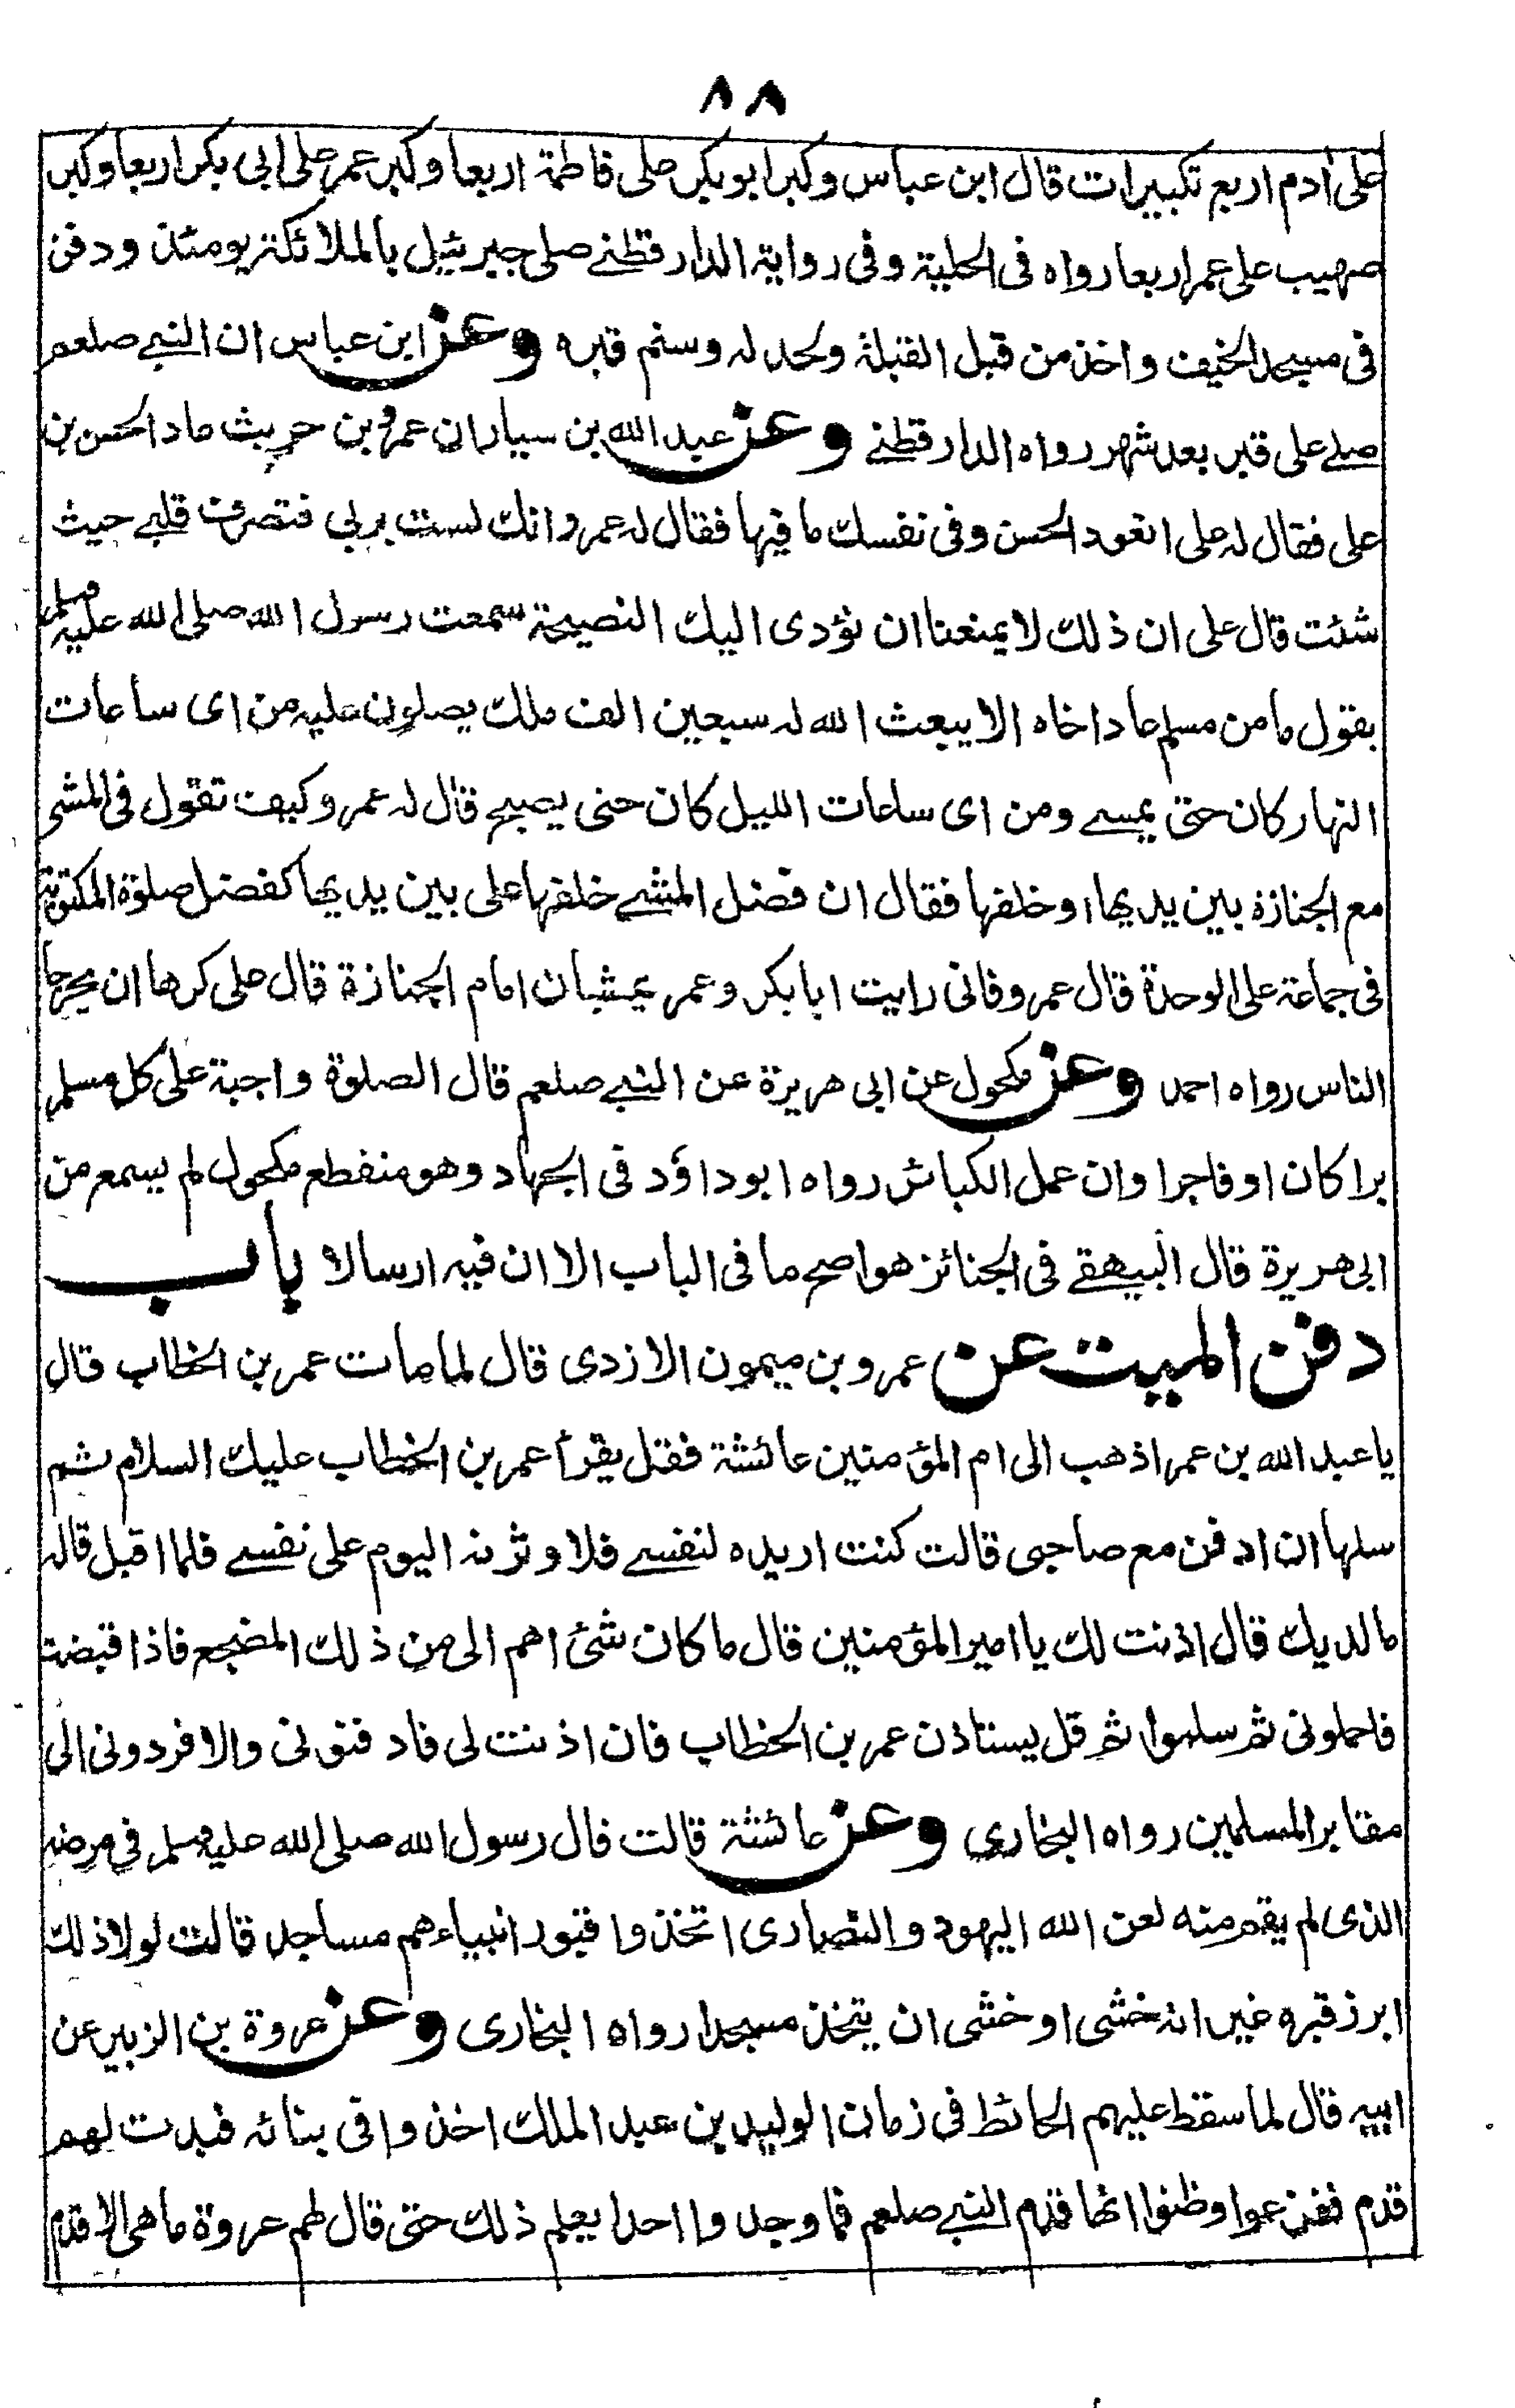 ٨٨
على أدم اربع تكبيرات قال ابن عباس وكبر ابوبكر على فاطمة اربعا وكبر عمر على ابي بكر اربعا وكبر
صهيب على عمر اربعا رواه فى الحلية وفى رواية الدارقطنے صلى جبرئيل بالملائكة يومئذ ودفن
فى مسجد الخيف واخذ من قبل القبلة ولحد له وسنم قبره وعن ابن عباس ان النبے صلعم
صلے على قبر بعد شهر رواه الدارقطنے وعن عبد الله بن سيار ان عمرو بن حريث عاد الحسن بن
على فقال له على اتعود الحسن وفى نفسك ما فيها فقال له عمرو انك لست بربى فتصرف قلبے حيث
شئت قال على ان ذلك لا يمنعنا ان نؤدى اليك النصيحة سمعت رسول الله صلى الله عليه وسلم
يقول ما من مسلم عاد اخاه الا يبعث الله له سبعين الف ملك يصلون عليه من اى ساعات
النهار كان حتى يمسے ومن اى ساعات الليل كان حتى يصبح قال له عمرو كيف تقول فى المشى
مع الجنازة بين يديها او خلفها فقال ان فضل المشے خلفها على بين يديها كفضل صلوة المكتوبة
فى جماعة على الوحدة قال عمرو فانى رايت ابا بكر وعمر يمشيان امام الجنازة قال على كرها ان يحرجا
الناس رواه احمد وعن مكحول عن ابى هريرة عن النبے صلعم قال الصلوة واجبة على كل مسلم
برا كان او فاجرا وان عمل الكبائر رواه ابو داؤد فى الجهاد وهو منقطع مكحول لم يسمع من
ابى هريرة قال البيهقے فى الجنائز هو اصح ما فى الباب الا ان فيه ارسالا باب
دفن الميت عن عمرو بن ميمون الازدى قال لما مات عمر بن الخطاب قال
يا عبد الله بن عمر اذهب الى ام المؤمنين عائشة فقل يقرأ عمر بن الخطاب عليك السلام ثم
سلها ان ادفن مع صاحبى قالت كنت اريده لنفسے فلاوثرنه اليوم على نفسے فلما اقبل قال له
ما لديك قال اذنت لك يا امير المؤمنين قال ما كان شئ اهم الى من ذلك المضجع فاذا قبضت
فاحملونى ثم سلموا ثم قل يستاذن عمر بن الخطاب فان اذنت لى فادفنونى والا فردونى الى
مقابر المسلمين رواه البخارى وعن عائشة قالت قال رسول الله صلى الله عليه وسلم فى مرضه
الذى لم يقم منه لعن الله اليهود والنصارى اتخذوا قبور انبياءهم مساجد قالت لولا ذلك
ابرز قبره غير انه خشى او خشى ان يتخذ مسجدا رواه البخارى وعن عروة بن الزبير عن
ابيه قال لما سقط عليهم الحائط فى زمان الوليد بن عبد الملك اخذوا فى بنائه فبدت لهم
قدم ففزعوا وظنوا انها قدم النبے صلعم فما وجدوا احدا يعلم ذلك حتى قال لهم عروة ما هى الا قدم